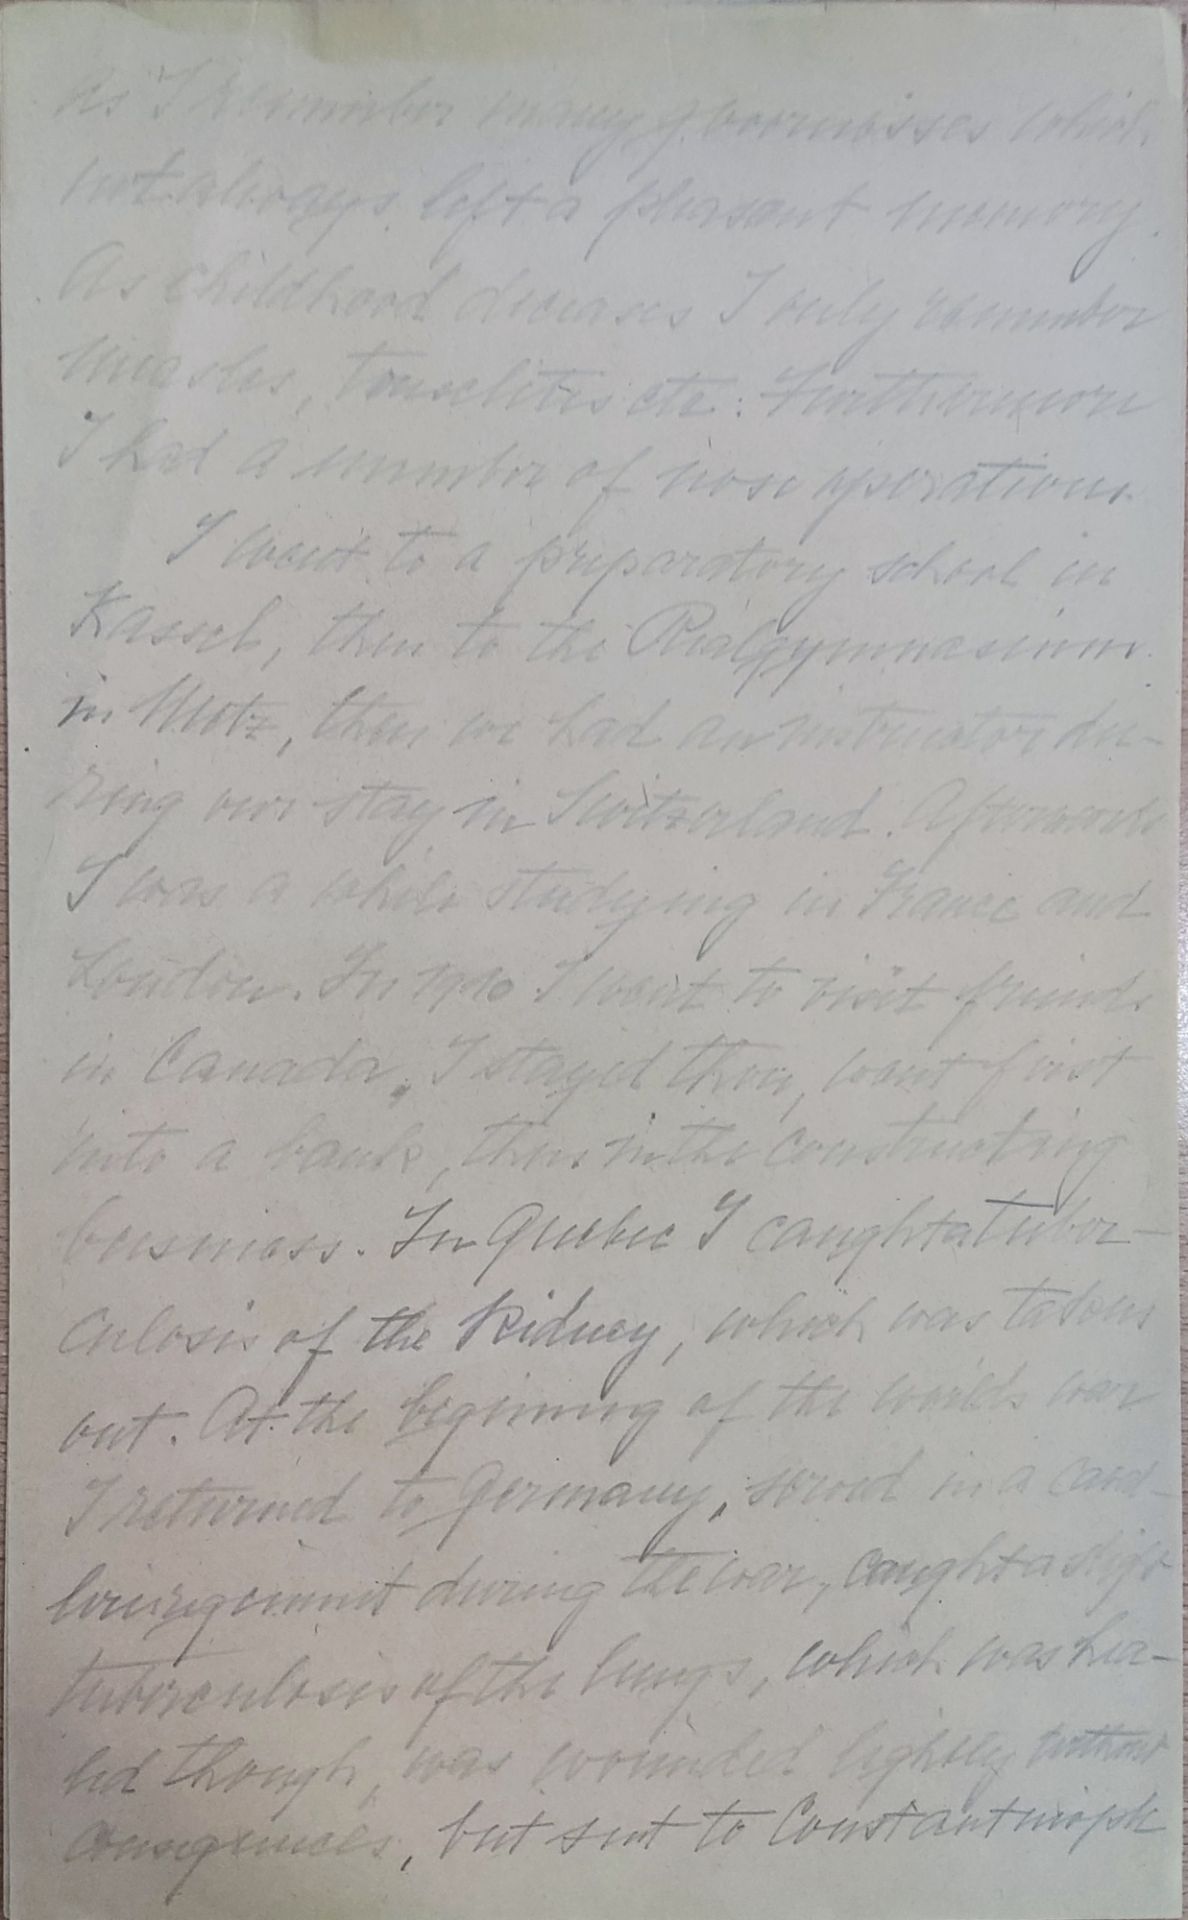 As I remember many governesses which
not always left a pleasant memory.
As childhood deceases I only remember
measles, tonselitis etc. Furthermore
I had a number of nose operations.
I went to a preparatory school in
Kassel, then to the Realgymnasium
in Metz, then we had an instructor du-
ring our stay in Switzerland. Afterwards
I was a while studying in France and
London. In 1910 I went to visit friends
in Canada. I stayed there, went first
into a bank, then in the constructing
business. In Quebec I caught a tuber-
culosis of the Kidney, which was taken
out. At the beginning of the worlds war
I returned to Germany, served in a
during the war, caught a
tuberculosis of the lungs, which was hea-
led though, was wounded lightly without
consequences, but sent to Constantinople